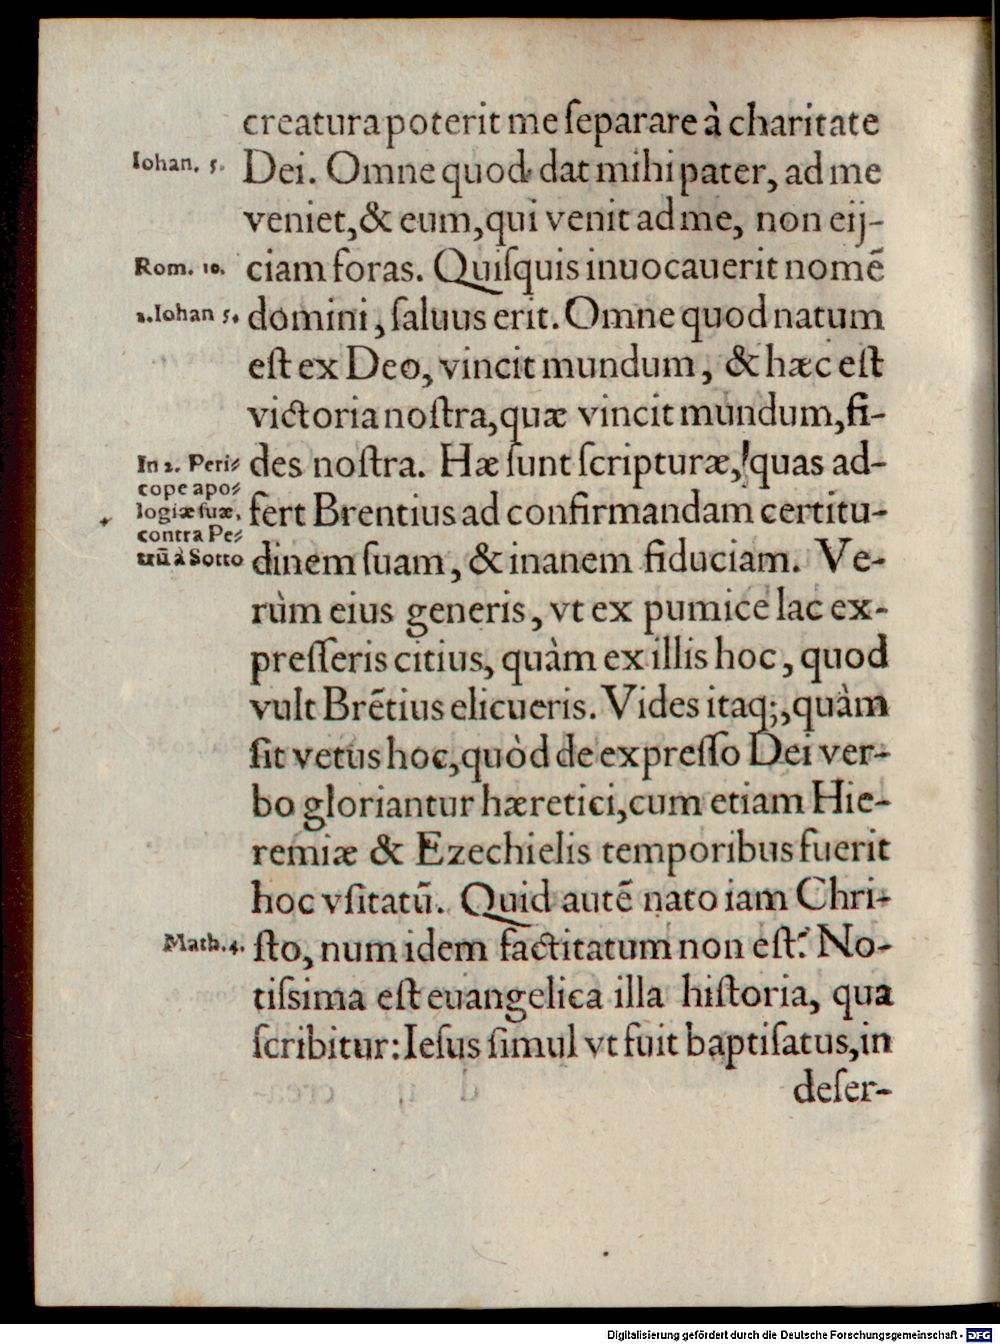 creatura poterit me ſeparare à charitate
Iohan. 5. Dei. Omne quod dat mihi pater, ad me
veniet, & eum, qui venit ad me, non eij-
Rom. 10. ciam foras. Quiſquis inuocauerit nomē
1. Iohan 5. domini, ſaluus erit. Omne quod natum
eſt ex Deo, vincit mundum, & hæc eſt
victoria noſtra, quæ vincit mundum, fi-
des noſtra. Hæ ſunt ſcripturæ, quas ad-
In 2. Peri-
cope apo-
logiæ ſuæ,
contra Pe-
trū à Sotto
fert Brentius ad confirmandam certitu-
dinem ſuam, & inanem fiduciam. Ve-
rùm eius generis, vt ex pumice lac ex-
preſſeris citius, quàm ex illis hoc, quod
vult Brētius elicueris. Vides itaq;, quàm
ſit vetus hoc, quòd de expreſſo Dei ver-
bo gloriantur hæretici, cum etiam Hie-
remiæ & Ezechielis temporibus fuerit
hoc vſitatū. Quid autē nato iam Chri-
Math. 4. ſto, num idem factitatum non eſt? No-
tiſsima eſt euangelica illa hiſtoria, qua
ſcribitur: Ieſus ſimul vt fuit baptiſatus, in
deſer-
Digitalisierung gefördert durch die Deutsche Forschungsgemeinschaft - DFG